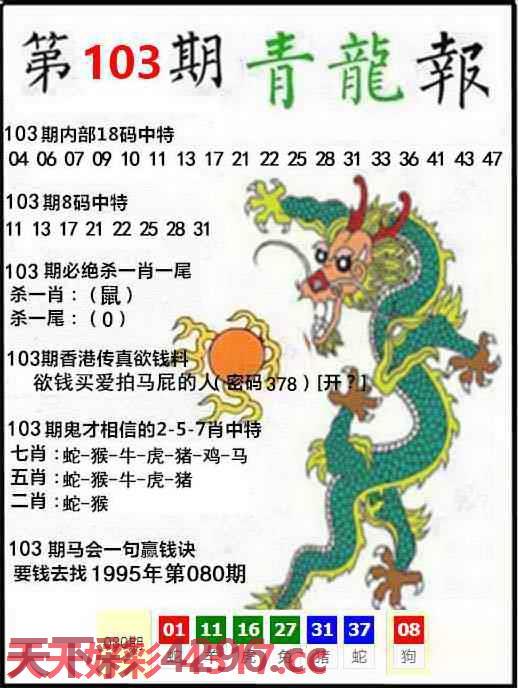 第103期 青龍報
103期内部18码中特
04 06 07 09 10 11 13 17 21 22 25 28 31 33 36 41 43 47
103期8码中特
11 13 17 21 22 25 28 31
103期必绝杀一肖一尾
杀一肖：(鼠)
杀一尾：(0)
103期香港传真欲钱料
欲钱买爱拍马屁的人(密码378)[开？]
103期鬼才相信的2-5-7肖中特
七肖：蛇-猴-牛-虎-猪-鸡-马
五肖：蛇-猴-牛-虎-猪
二肖：蛇-猴
103期马会一句赢钱诀
要钱去找1995年第080期
080期 01 11 16 27 31 37 08
蛇 虎 兔 猪 蛇 狗